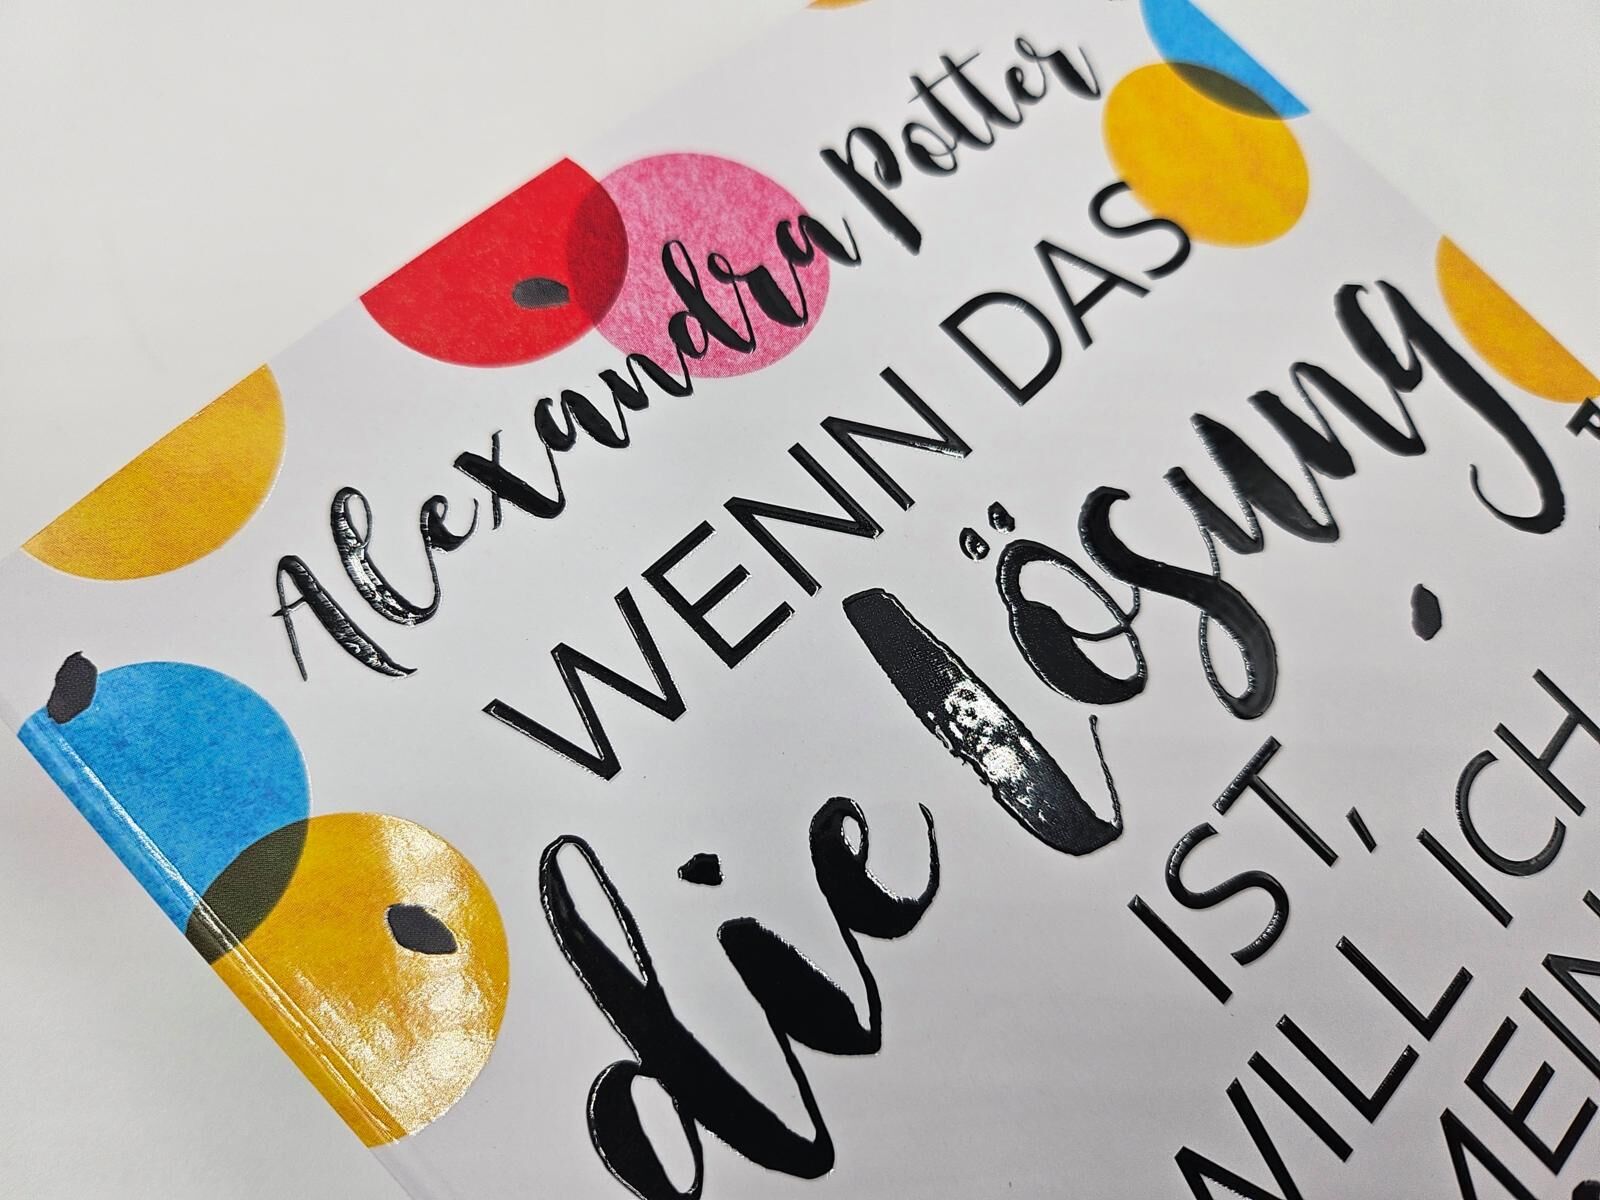 Alexandra Potter
WENN DAS
die Lösung
IST,
WILL ICH
MEIN